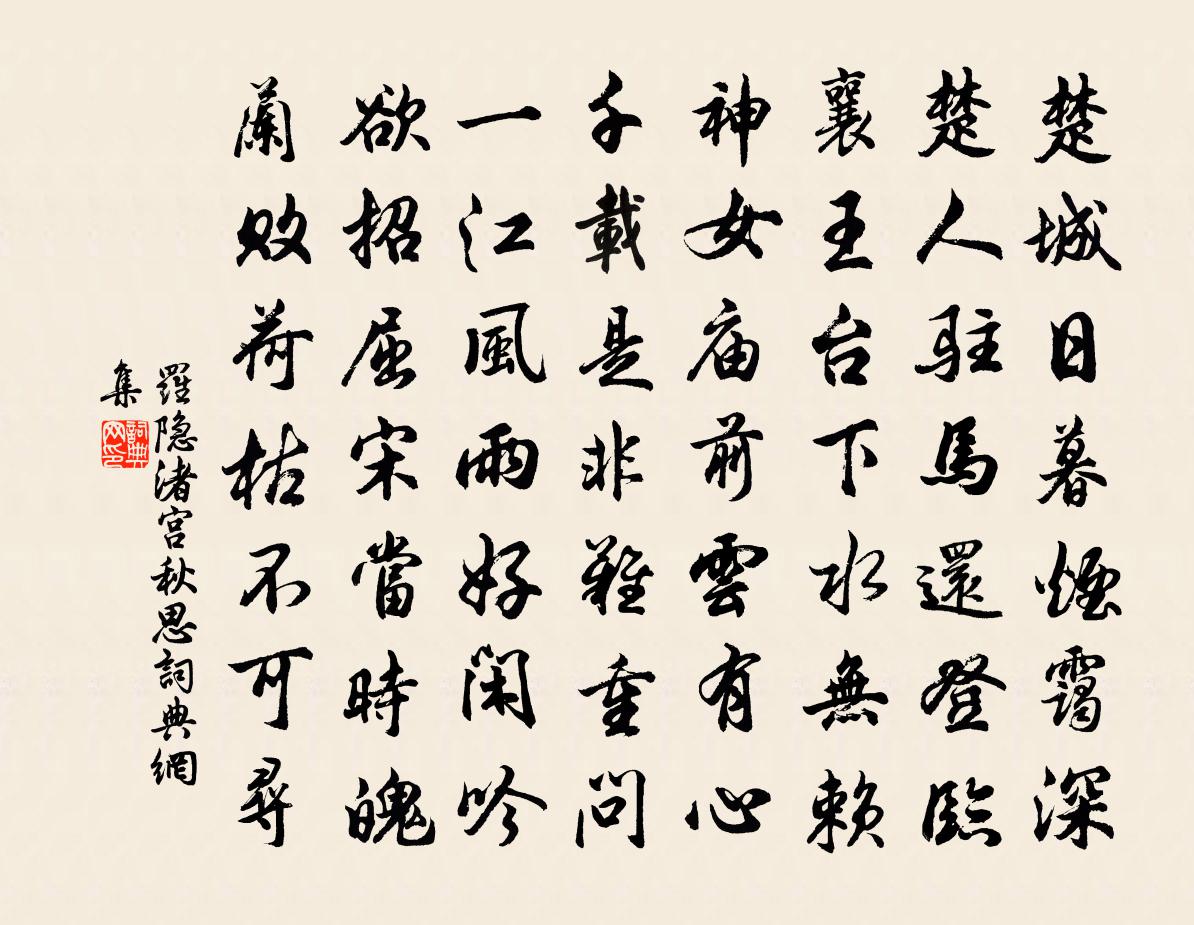 楚城日暮煙靄深
楚人駐馬還登臨
襄王台下水無賴
神女庙前雲有心
千載是非難重問
一江風雨好閑吟
欲招屈宋當時魄
蘭敗荷枯不可尋
羅隐渚宫秋思詞典網
集
詞典
网印